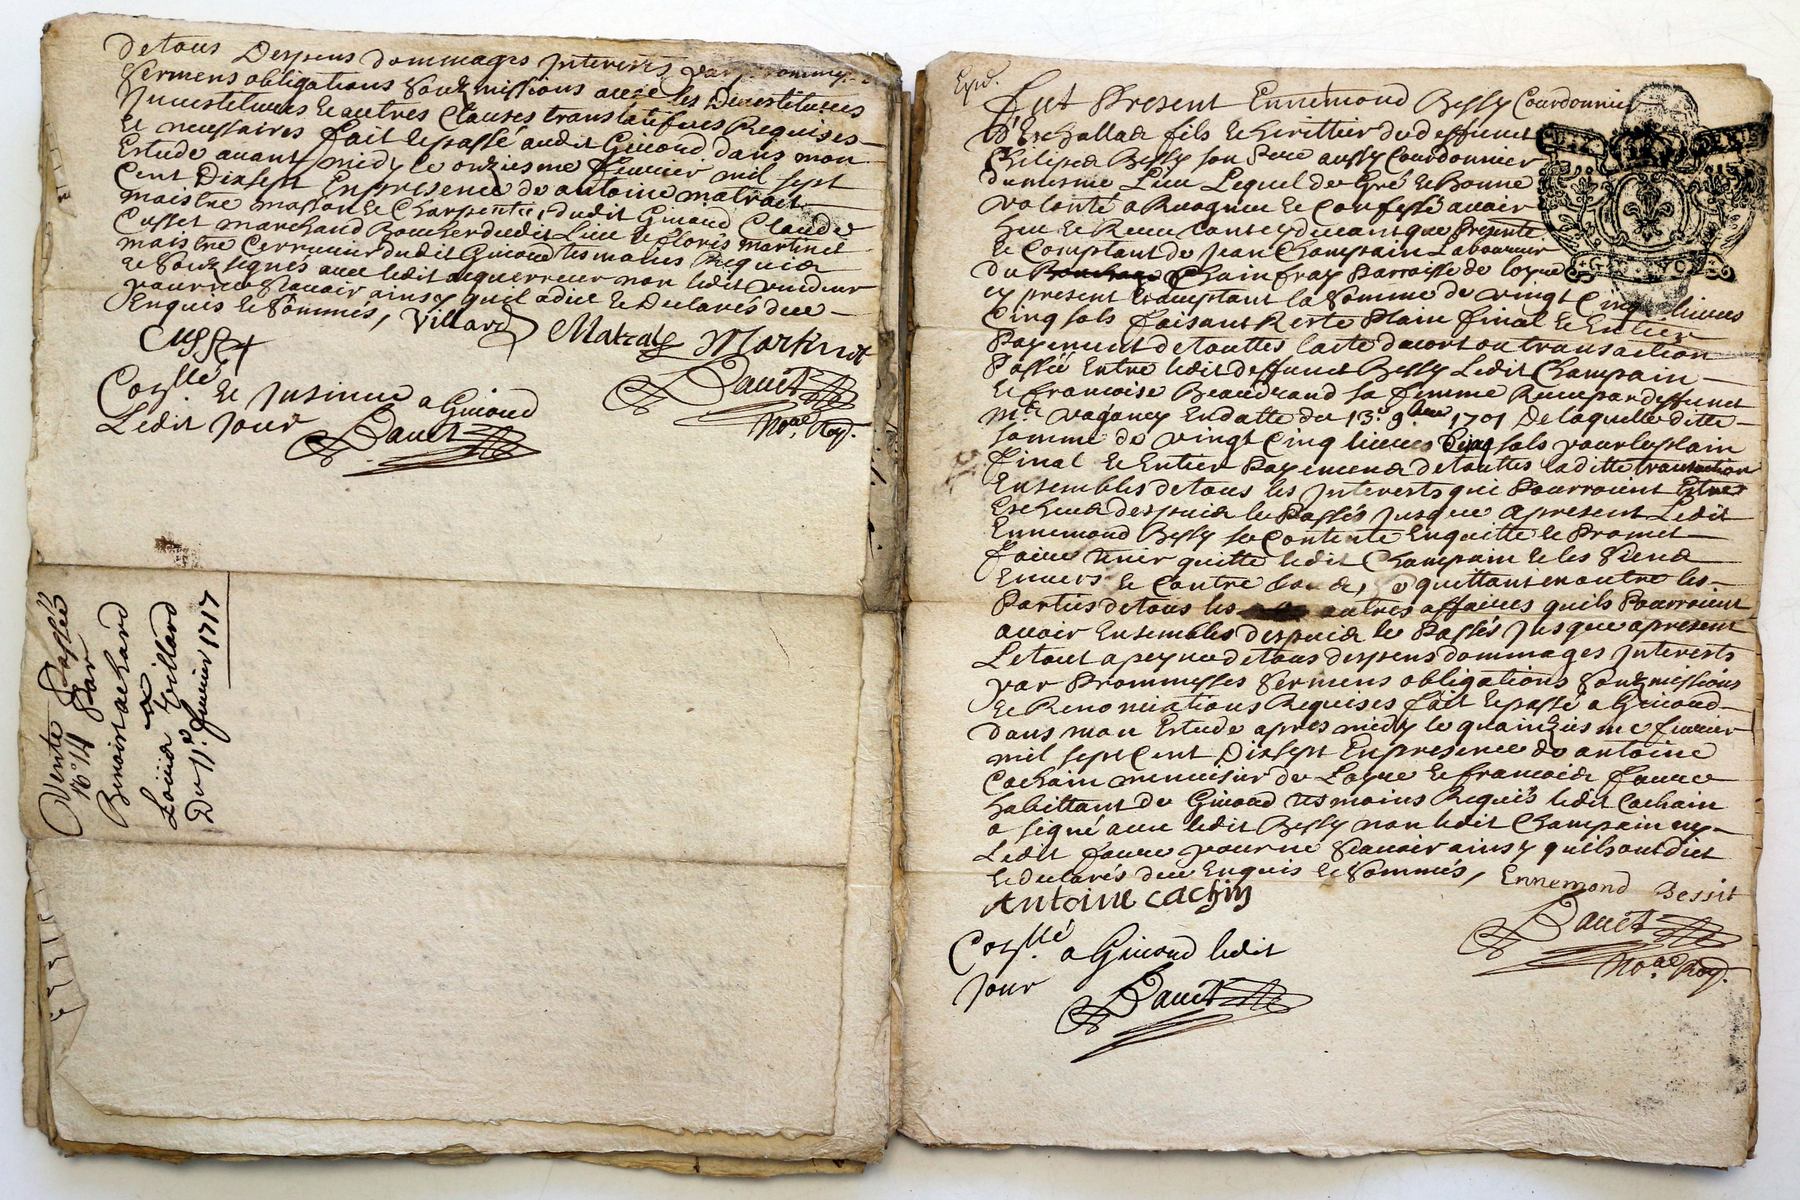 de tous Despens dommages Interests par promesses
sermens obligations soubzmissions avec les Devestitures
Investitures & autres Clauses translatifves Requises
& necessaires fait & passé audit Givord dans mon
Estude avant midy le onziesme fevrier mil sept
Cent Dixsept En presence de antoine matrait
maistre masson & Charpentier dudit Givord Claude
Cusset marchand Boucher dudit Lieu & Floris Martinet
maistre Cerrurier dudit Givord tesmoins Requis
& soubzsignés avec ledit acquerreur non ledit vendeur
pour ne sçavoir ainsy quil a dit & Declarés deue
Enquis & Sommés, Villard Matrat Martinet
Cusset
Davet
Noare Roy.
Con.lle & Insinué a Givord
Ledit jour Davet
Vente Passée
No 14 Par
Benoist achard
a
Louis Villard
Du 11e fevrier 1717
Exp.
Fut Present Ennemond Bessy Courdonnier
d'Eschallas fils & herittier de deffunct
Philipes Bessy son Pere aussy Courdonnier
du mesme Lieu Lequel de Gré & Bonne
volonté a Recogneu & Confessé avoir
heu & Receu canteydevant que Presente
& Comptant de Jean Champain Laboureur
du Chainfray Parroisse de loyre
cy present & acceptant la Somme de vingt Cinq livres
Cinq sols faisant Reste Plain final & Entier
Payement de touttes lacte dacort ou transaction
Passée Entre ledit deffunct Bessy Ledit Champain
& francoise Beaudrand sa femme Receu par deffunct
Me Vaganey En datte du 13e 9bre 1701 De laquelle ditte
somme de vingt Cinq livres Cinq sols pour le plain
final & Entier Payement de touttes la ditte transaction
Ensembles de tous les Interests qui Pourroient Estre
Escheus despuis le Passés Jusque apresent Ledit
Ennemond Bessy se Contente En quitte & Promet
faire tenir quitte ledit Champain & les siens
Envers & Contre tous, se quittant en outre les
Parties de tous les autres affaires quils Pourroient
avoir Ensembles despuis le Passés Jusque apresent
Le tout a peyne de tous despens dommages Interests
par Prommesses sermens obligations soubzmissions
& Renontiations Requises fait & passé a Givord
dans mon Estude apres midy le quainziesme fevrier
mil sept Cent Dixsept En presence de antoine
Cachain menuisier de Loyre & francois faure
habittant de Givord tesmoins Requis ledit Cachain
a signé avec ledit Bessy non ledit Champain ny
Ledit faure pour ne sçavoir ainsy quils ont dict
& declarés deue Enquis & Sommés, Ennemond Bessit
Antoine cachin
Davet
Noare Roy.
Con.lle a Givord ledit
jour Davet